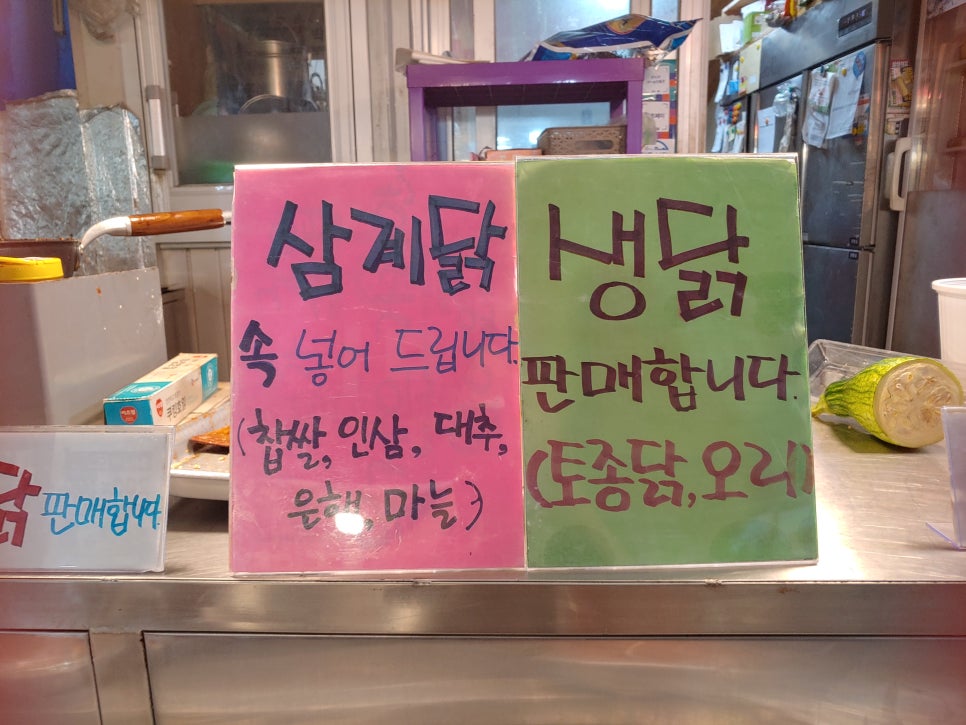 삼계닭
속 넣어 드립니다.
(찹쌀, 인삼, 대추,
은행, 마늘)
생닭
판매합니다.
(토종닭, 오리)
닭 판매합니다.